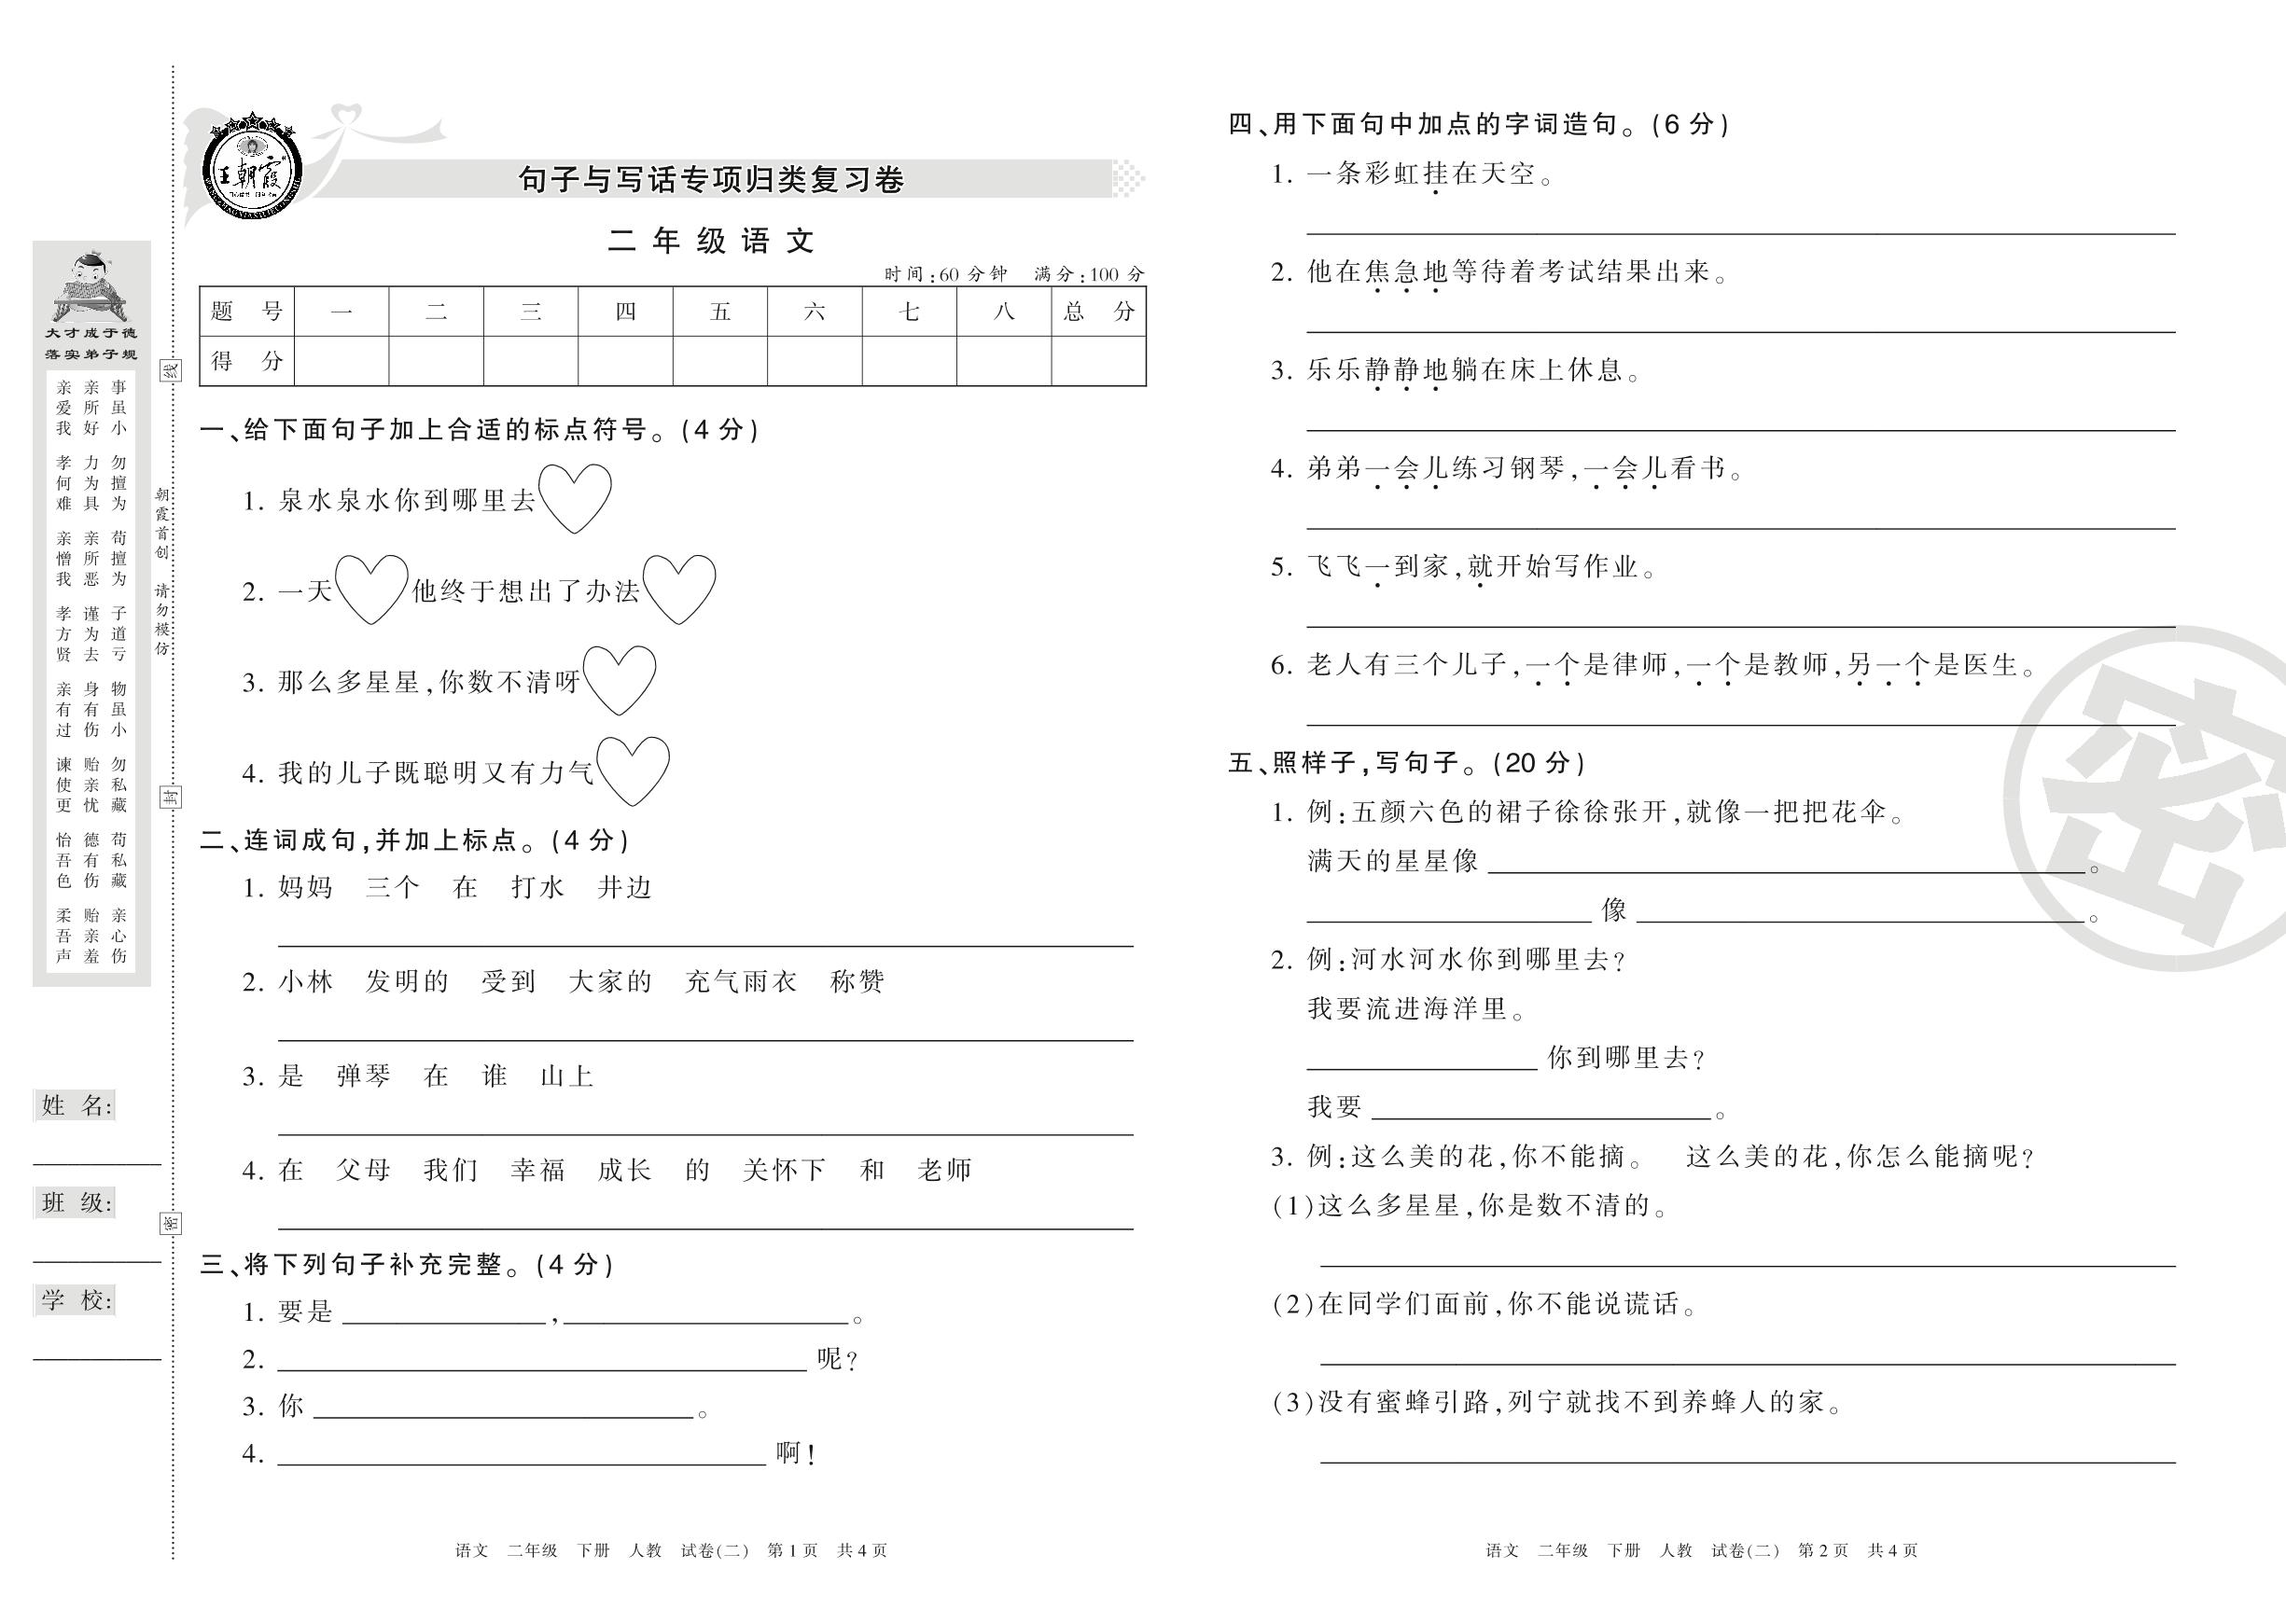 王朝霞
句子与写话专项归类复习卷
二年级语文
时间:60分钟 满分:100分
题 号 一 二 三 四 五 六 七 八 总 分
得 分
一、给下面句子加上合适的标点符号。(4分)
1. 泉水泉水你到哪里去
2. 一天 他终于想出了办法
3. 那么多星星,你数不清呀
4. 我的儿子既聪明又有力气
二、连词成句,并加上标点。(4分)
1. 妈妈 三个 在 打水 井边
2. 小林 发明的 受到 大家的 充气雨衣 称赞
3. 是 弹琴 在 谁 山上
4. 在 父母 我们 幸福 成长 的 关怀下 和 老师
三、将下列句子补充完整。(4分)
1. 要是 , 。
2. 呢?
3. 你 。
4. 啊!
语文 二年级 下册 人教 试卷(二) 第1页 共4页
大才成于德
落实弟子规
事虽小 勿擅为 苟擅为 子道亏 物虽小 勿私藏 苟私藏 亲心伤
亲所好 力为具 亲所恶 谨为去 身有伤 贻亲忧 德有伤 贻亲羞
亲爱我 孝何难 亲憎我 孝方贤 亲有过 谏使更 怡吾色 柔吾声
朝霞首创 请勿模仿
线
封
密
姓 名:
班 级:
学 校:
四、用下面句中加点的字词造句。(6分)
1. 一条彩虹挂在天空。
2. 他在焦急地等待着考试结果出来。
3. 乐乐静静地躺在床上休息。
4. 弟弟一会儿练习钢琴,一会儿看书。
5. 飞飞一到家,就开始写作业。
6. 老人有三个儿子,一个是律师,一个是教师,另一个是医生。
五、照样子,写句子。(20分)
1. 例:五颜六色的裙子徐徐张开,就像一把把花伞。
满天的星星像 。
像 。
2. 例:河水河水你到哪里去?
我要流进海洋里。
你到哪里去?
我要 。
3. 例:这么美的花,你不能摘。 这么美的花,你怎么能摘呢?
(1)这么多星星,你是数不清的。
(2)在同学们面前,你不能说谎话。
(3)没有蜜蜂引路,列宁就找不到养蜂人的家。
密
语文 二年级 下册 人教 试卷(二) 第2页 共4页